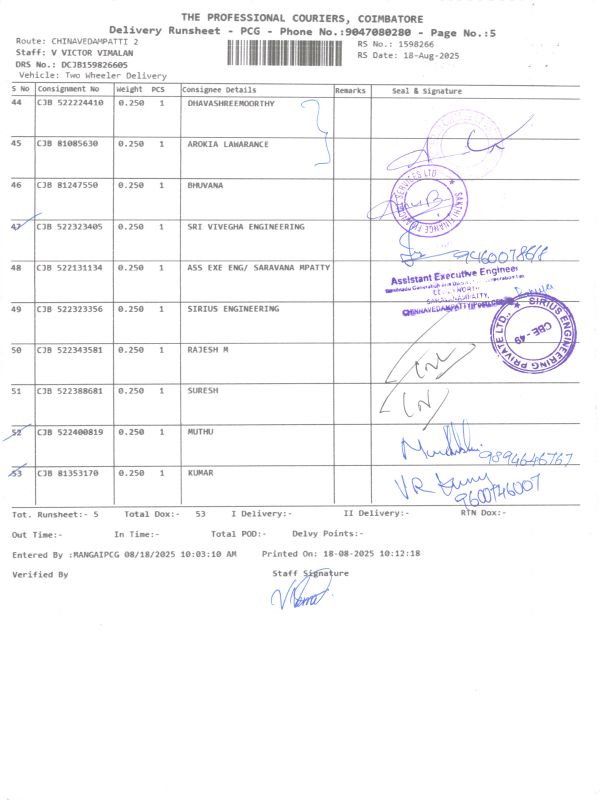 THE PROFESSIONAL COURIERS, COIMBATORE
Delivery Runsheet - PCG - Phone No.:9047080280 - Page No.:5
Route: CHINAVEDAMPATTI 2
RS No.: 1598266
Staff: V VICTOR VIMALAN
RS Date: 18-Aug-2025
DRS No.: DCJB159826605
Vehicle: Two Wheeler Delivery
S No Consignment No Weight PCS Consignee Details Remarks Seal & Signature
44 CJB 522224410 0.250 1 DHAVASHREEMOORTHY
45 CJB 81085630 0.250 1 AROKIA LAWARANCE
46 CJB 81247550 0.250 1 BHUVANA
SAKTHI FINANCE FINANCIAL SERVICES LTD
47 CJB 522323405 0.250 1 SRI VIVEGHA ENGINEERING
9460078618
48 CJB 522131134 0.250 1 ASS EXE ENG/ SARAVANA MPATTY
Assistant Executive Engineer
49 CJB 522323356 0.250 1 SIRIUS ENGINEERING
SIRIUS ENGINEERING PRIVATE LTD.,
CBE - 49
50 CJB 522343581 0.250 1 RAJESH M
51 CJB 522388681 0.250 1 SURESH
52 CJB 522400819 0.250 1 MUTHU
9894646767
53 CJB 81353170 0.250 1 KUMAR
VR
9600746007
Tot. Runsheet:- 5 Total Dox:- 53 I Delivery:- II Delivery:- RTN Dox:-
Out Time:- In Time:- Total POD:- Delvy Points:-
Entered By :MANGAIPCG 08/18/2025 10:03:10 AM Printed On: 18-08-2025 10:12:18
Verified By Staff Signature